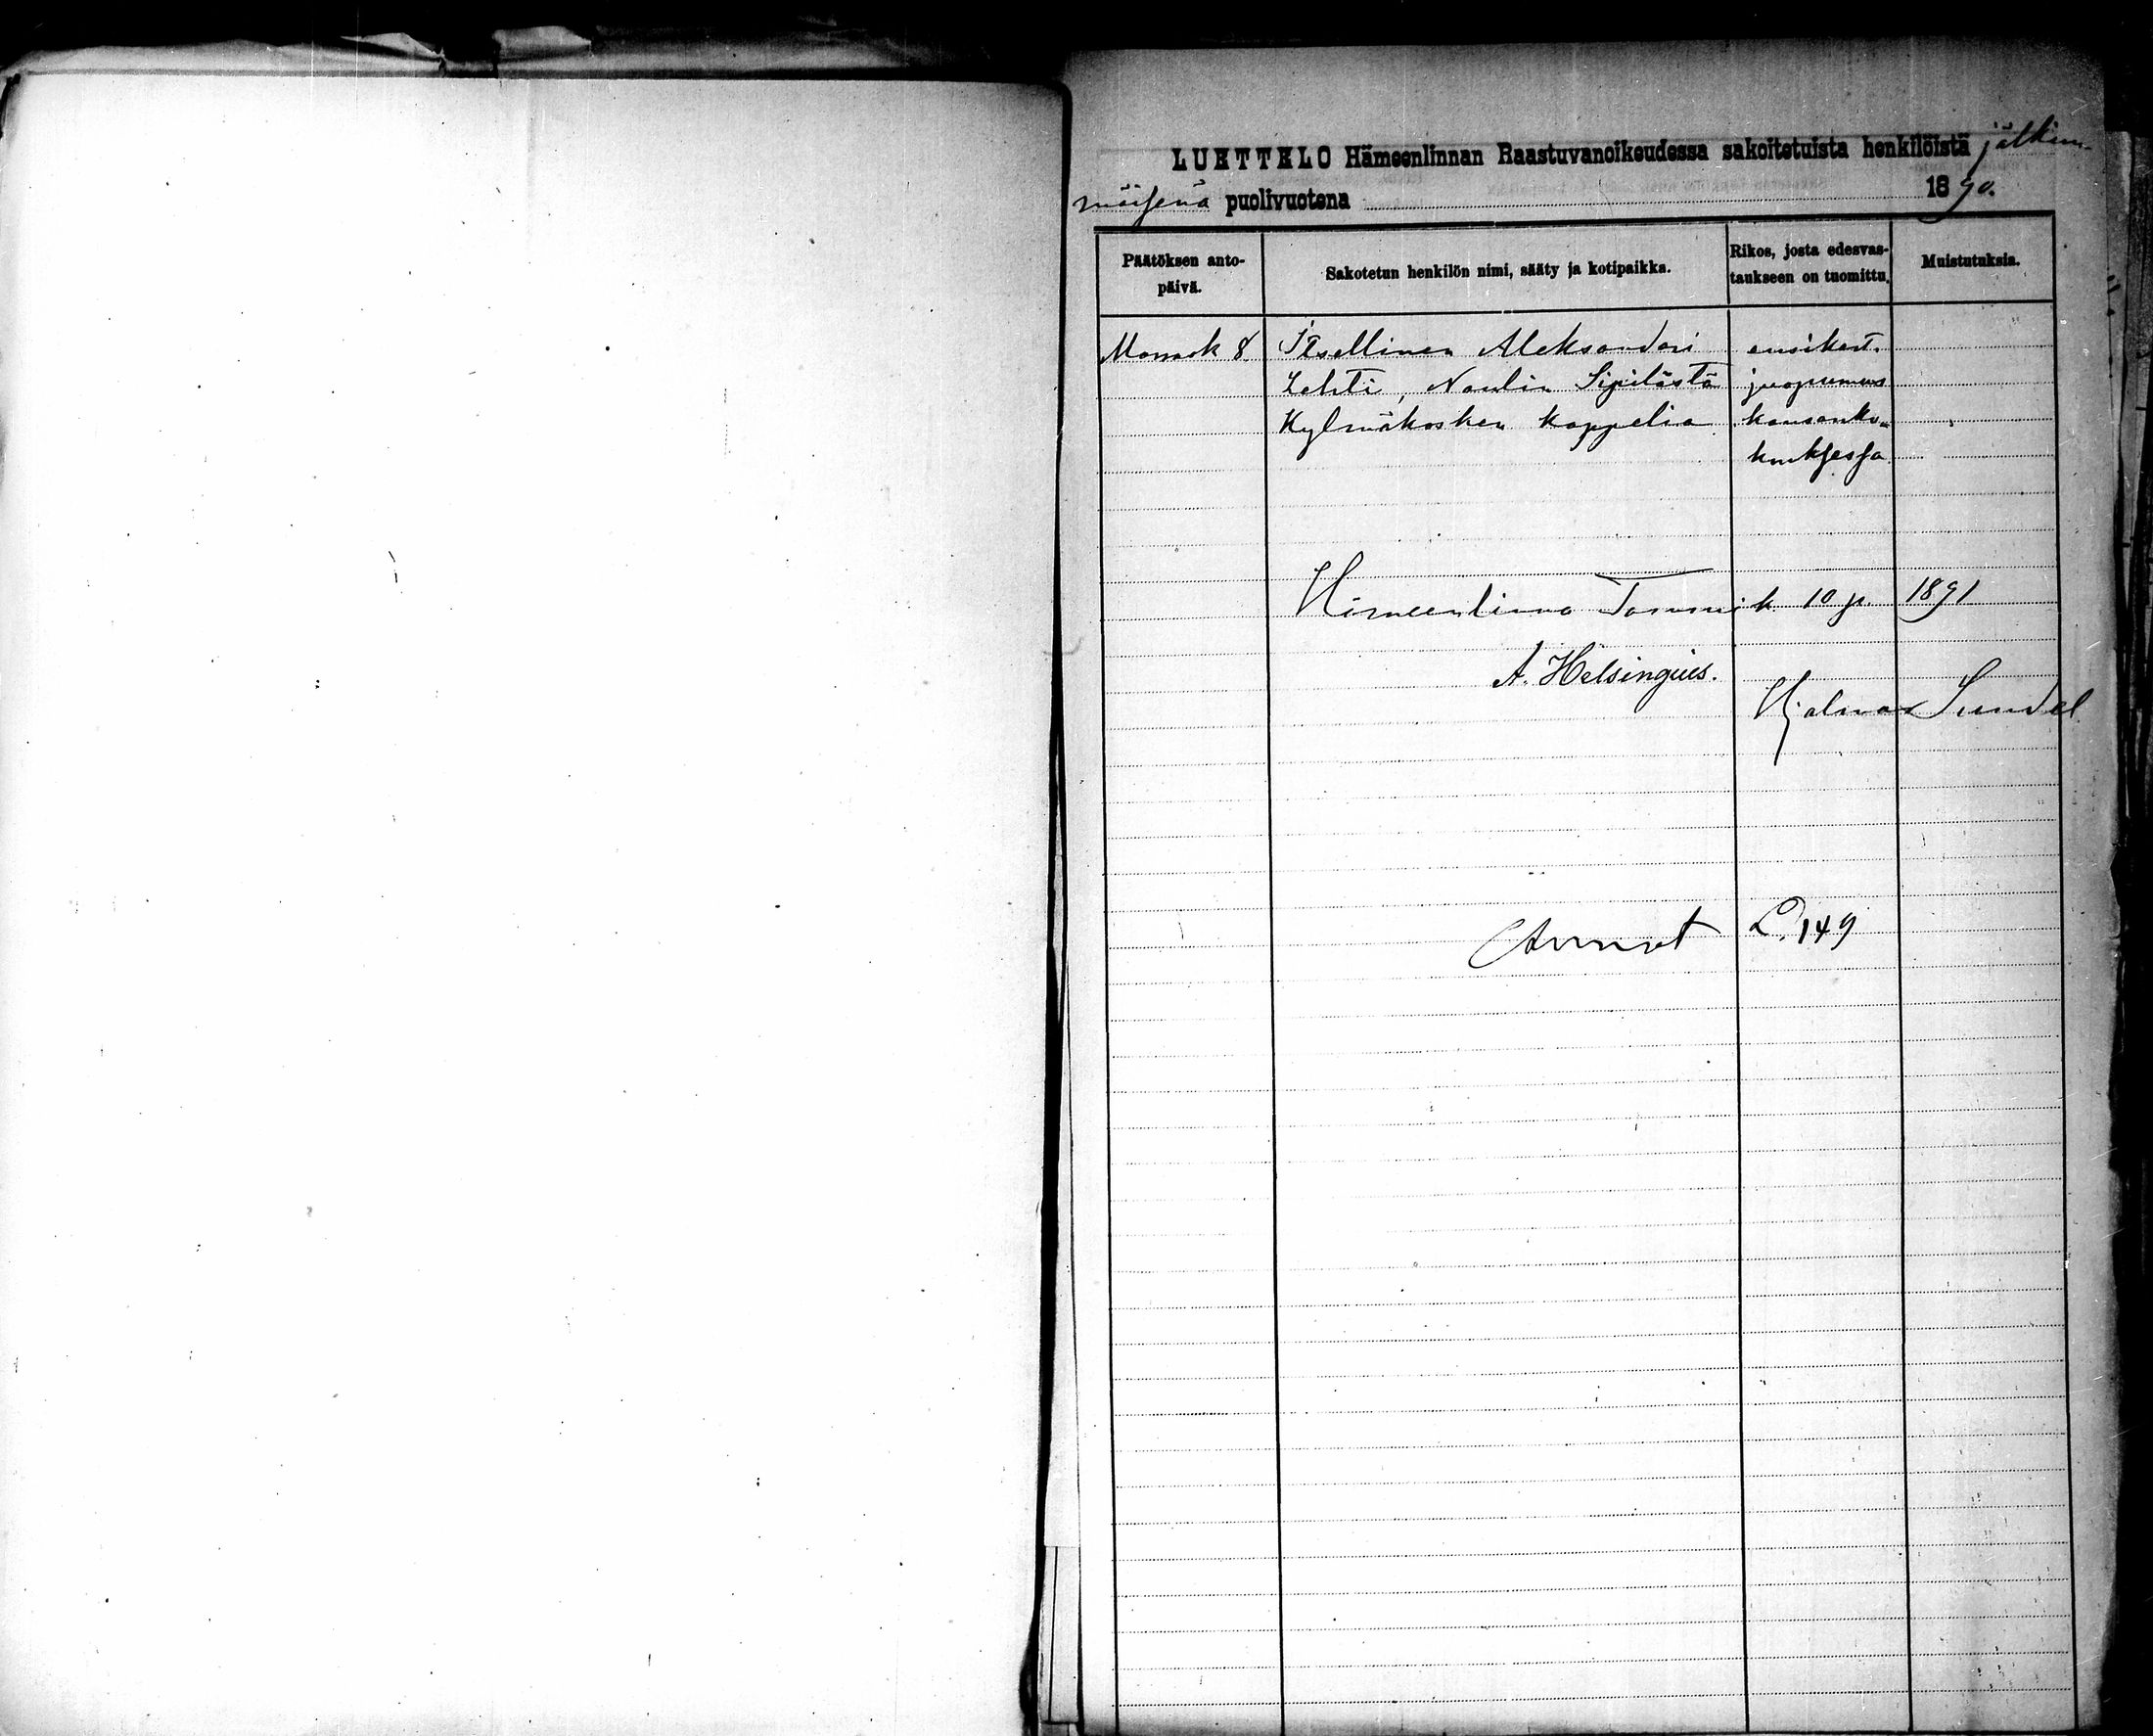 LUETTELO Hämeenlinnan Raastuvanoikeudessa sakoitetuista henkilöistä jälkim-
mäisenä puolivuotena 1890.
Päätöksen anto-
päivä.
Sakotetun henkilön nimi, sääty ja kotipaikka.
Rikos, josta edesvas-
taukseen on tuomittu.
Muistutuksia.
Marrask 8. Itsellinen Aleksandari ensikert.
Lehti, Naulin Sipilästä juopumus
Kylmäkosken kappelia kansanko-
kouksessa
Hämeenlinna Tammik. 10 p. 1891
A. Helsingius.
Hjalmar Sundel
L. 149